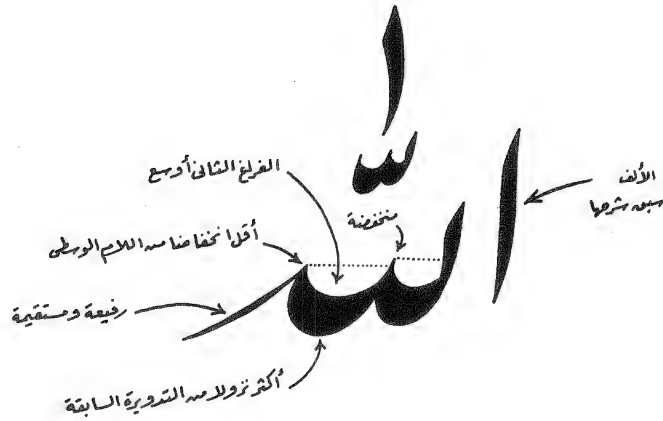 الله
الألف
سبق شرحها
منخفضة
الفراغ الثاني أوسع
أقل انخفاضا من اللام الوسطى
رفيعة ومستقيمة
أكثر نزولا من التدويرة السابقة